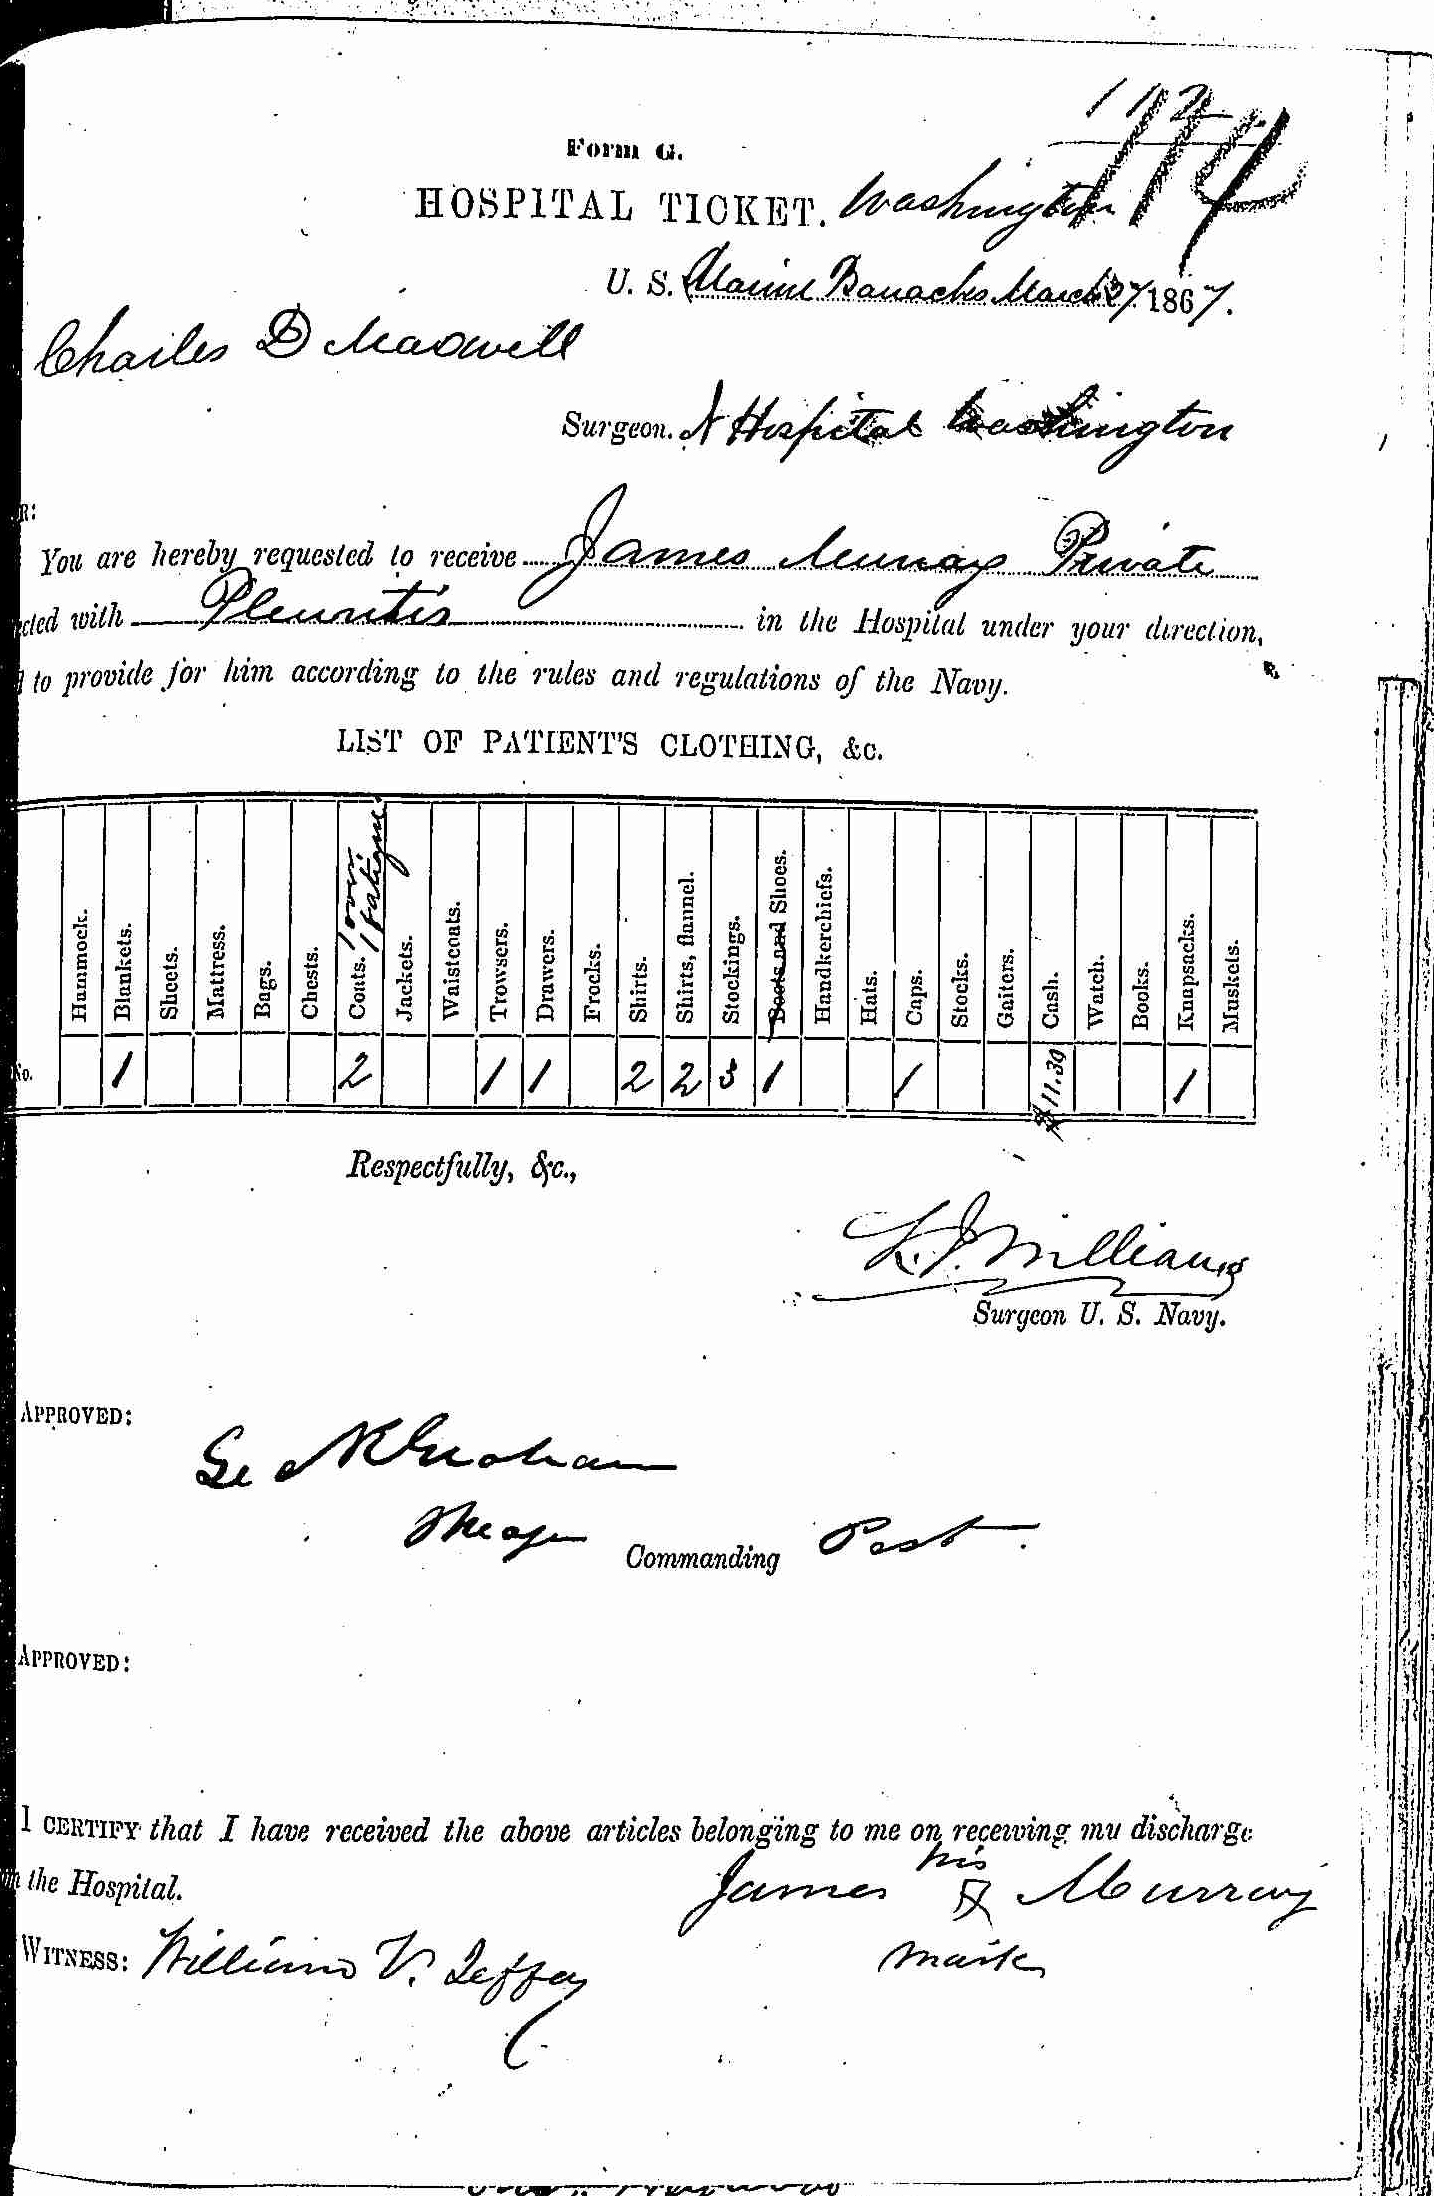 112
114
Form G.
HOSPITAL TICKET. Washington
U. S. Marine Barracks March 27 1867.
Charles D Maxwell
Surgeon. N Hospital Washington
R:
You are hereby requested to receive James Murray Private
cted with Pleuritis in the Hospital under your direction,
to provide for him according to the rules and regulations of the Navy.
LIST OF PATIENT'S CLOTHING, &c.
Hammock. Blankets. Sheets. Mattress. Bags. Chests. Coats. 1 over 1 fatigue Jackets. Waistcoats. Trowsers. Drawers. Frocks. Shirts. Shirts, flannel. Stockings. Boots and Shoes. Handkerchiefs. Hats. Caps. Stocks. Gaiters. Cash. Watch. Books. Knapsacks. Muskets.
No. 1 2 1 1 2 2 3 1 1 $11.30 1
Respectfully, &c.,
Williams
Surgeon U. S. Navy.
APPROVED:
Graham
Major Commanding Post.
APPROVED:
I CERTIFY that I have received the above articles belonging to me on receiving my discharge
the Hospital.
his
James Murray
mark
WITNESS: William V.